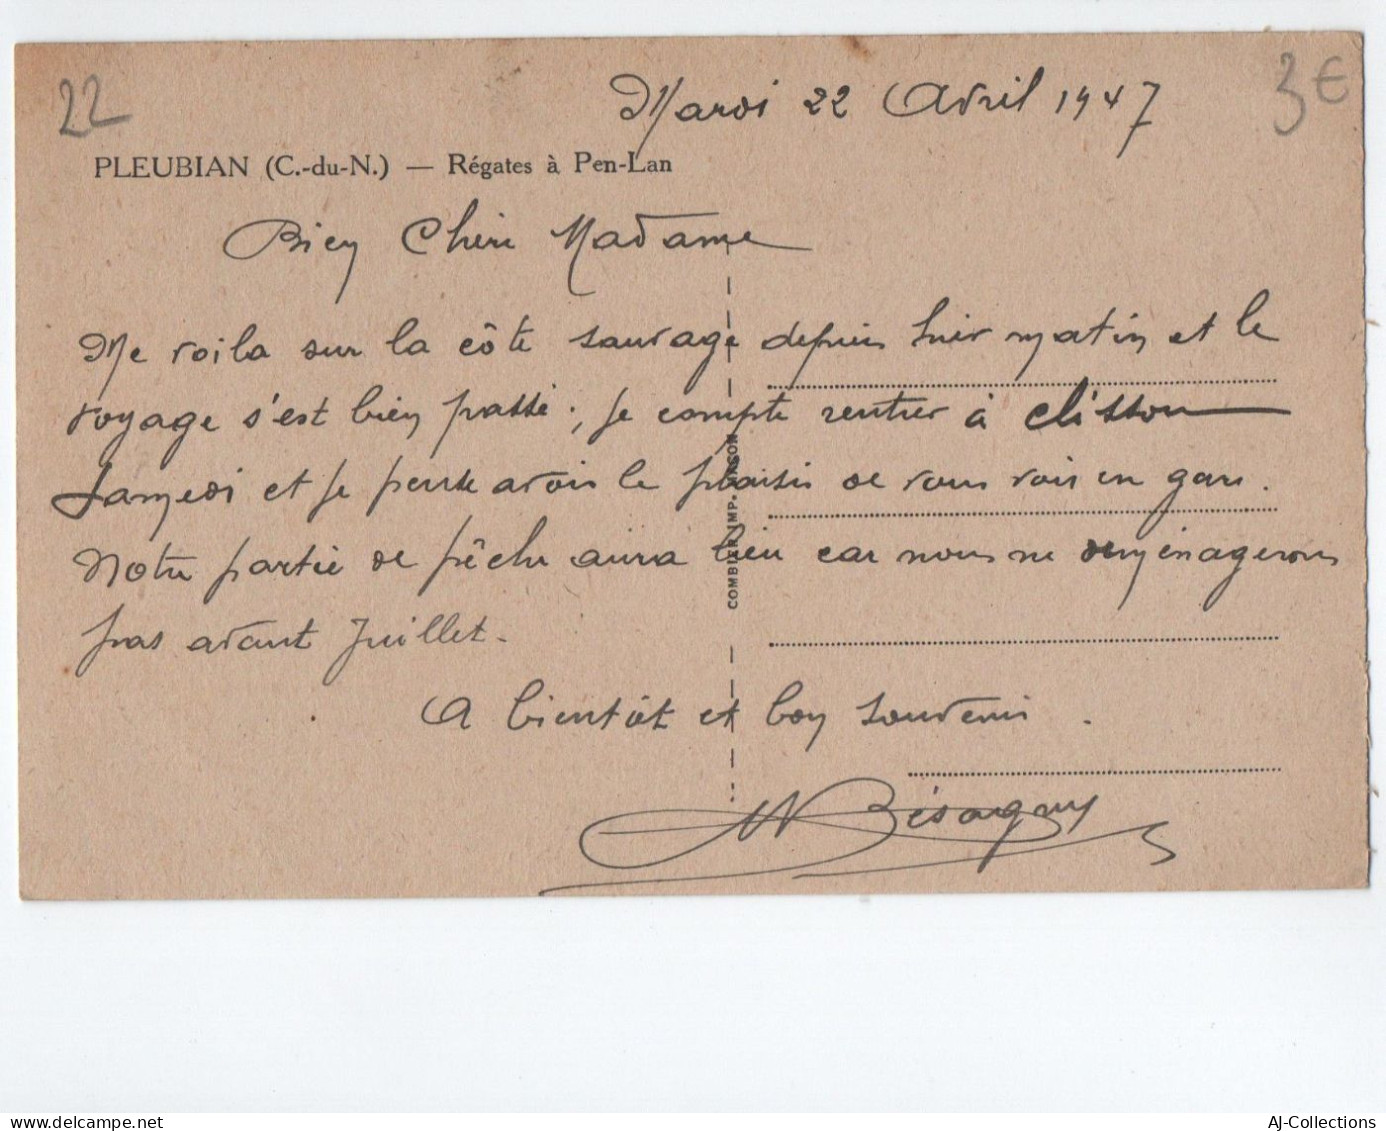 22
3€
Mardi 22 Avril 1947
PLEUBIAN (C.-du-N.) — Régates à Pen-Lan
Bien Chère Madame
Me voila sur la côte sauvage depuis hier matin et le
voyage s'est bien passé ; je compte rentrer à Clisson
Samedi et je pense avoir le plaisir de vous voir en gare.
Notre partie de pêche aura lieu car nous ne déménagerons
pas avant Juillet.
A bientôt et bon souvenir.
COMBIER IMP. MACON
AJ-Collections